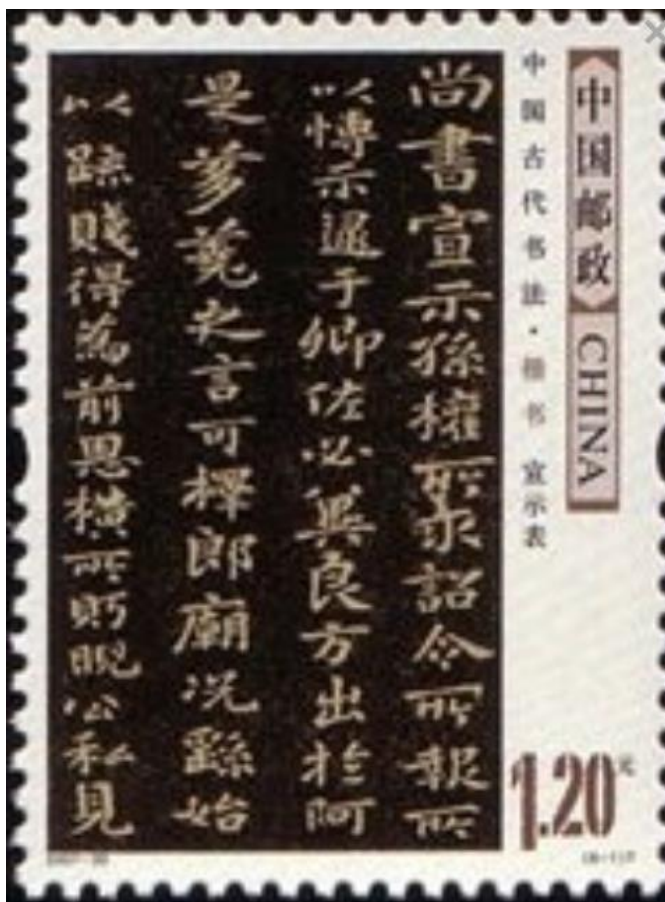 中国邮政 CHINA
中国古代书法·楷书 宣示表
尚書宣示孫權所求詔令所報所
以博示逮于卿佐必冀良方出於阿
是芻蕘之言可擇郎廟況繇始
以疏賤得為前恩橫所眄睨公私見
1.20元